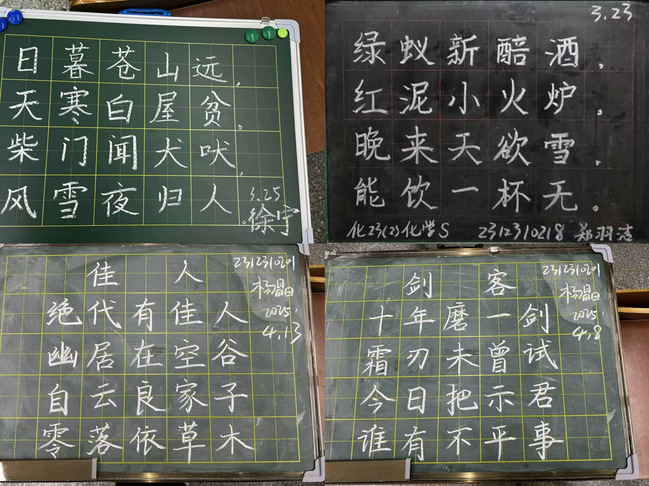 日暮苍山远,
天寒白屋贫。
柴门闻犬吠,
风雪夜归人
3.25
徐宇
3.23
绿蚁新醅酒,
红泥小火炉。
晚来天欲雪,
能饮一杯无。
化23(2)化学S 2312310218 郑羽洁
佳人
2312310201
杨昌日
2025.
4.13
绝代有佳人
幽居在空谷
自云良家子
零落依草木
剑客
2312310201
杨昌日
2025.
4.8
十年磨一剑
霜刃未曾试
今日把示君
谁有不平事